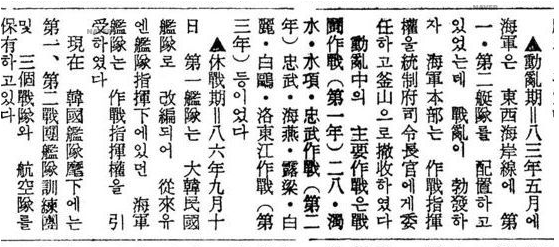 ▲動亂期=八三年五月에
海軍은 東西海岸線에 第
一·第二艇隊를 配置하고
있었는데 戰亂이 勃發하
자 海軍本部는 作戰指揮
權을 統制府司令長官에게 委
任하고 釜山으로 撤收하였다
動亂中의 主要作戰은 戰
鬪作戰(第一年)二八·濁
水·水項·忠武作戰(第二
年)忠武·海燕·露梁·白
麗·白鷗·洛東江作戰(第
三年)等이었다
▲休戰期=八六年九月十
日 第一艦隊는 大韓民國
艦隊로 改編되어 從來유
엔艦隊指揮下에있던 海軍
艦隊는 作戰指揮權을 引
受하였다
現在 韓國艦隊麾下에는
第一、第二戰團艦隊訓練團
및 三個戰隊와 航空隊를
保有하고있다